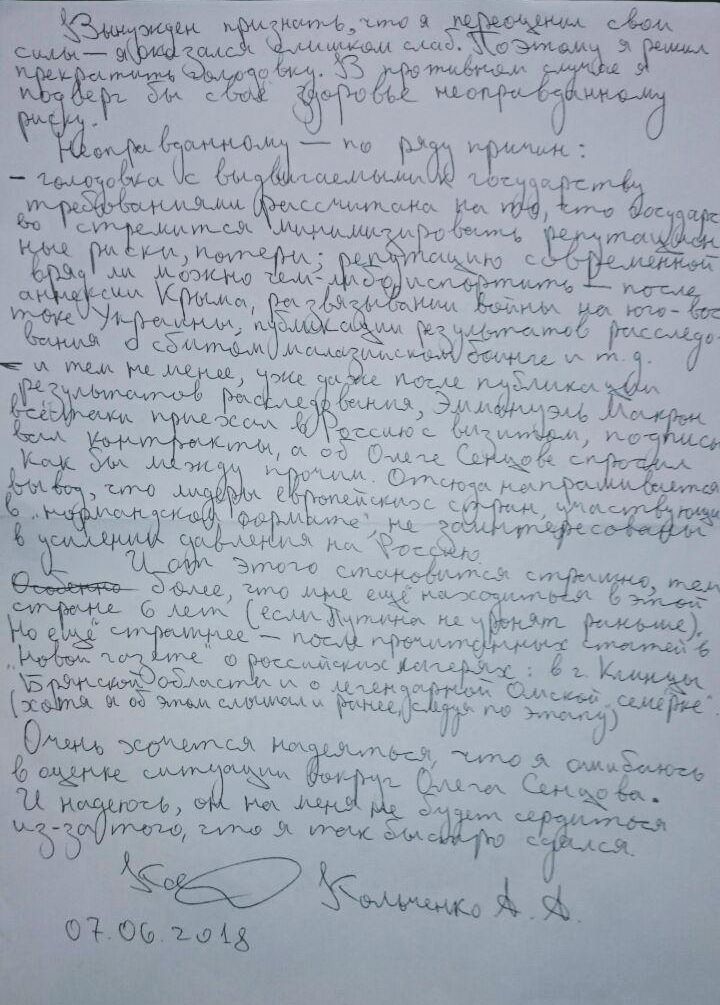 Вынужден признать, что я переоценил свои
силы — я оказался слишком слаб. Поэтому я решил
прекратить голодовку. В противном случае я
подверг бы своё здоровье неоправданному
риску.
Неоправданному — по ряду причин:
- голодовка с выдвигаемыми к государству
требованиями рассчитана на то, что государст-
во стремится минимизировать репутацион-
ные риски, потери; репутацию современной
вряд ли можно чем-либо испортить — после
аннексии Крыма, развязывании войны на юго-вос
токе Украины, публикации результатов расследо-
вания о сбитом малазийском боинге и т.д.
- и тем не менее, уже даже после публикации
результатов расследования, Эммануэль Макрон
всё-таки приехал в Россию с визитом, подписы
вал контракты, а об Олеге Сенцове спросил
как бы между прочим. Отсюда напрашивается
вывод, что лидеры европейских стран, участвующи
в "нормандском формате", не заинтересованы
в усилении давления на Россию.
И от этого становится страшно, тем
Особенно более, что мне ещё находиться в этой
стране 6 лет (если Путина не уронят раньше).
Но ещё страшнее — после прочитанных статей в
"Новой газете" о российских лагерях: в г. Клинцы
Брянской области и о легендарной Омской "семёрке"
(хотя я об этом слышал и ранее, следуя по этапу)
Очень хочется надеяться, что я ошибаюсь
в оценке ситуации вокруг Олега Сенцова.
И надеюсь, он на меня не будет сердиться
из-за того, что я так быстро сдался.
Кольченко А. А.
07.06.2018